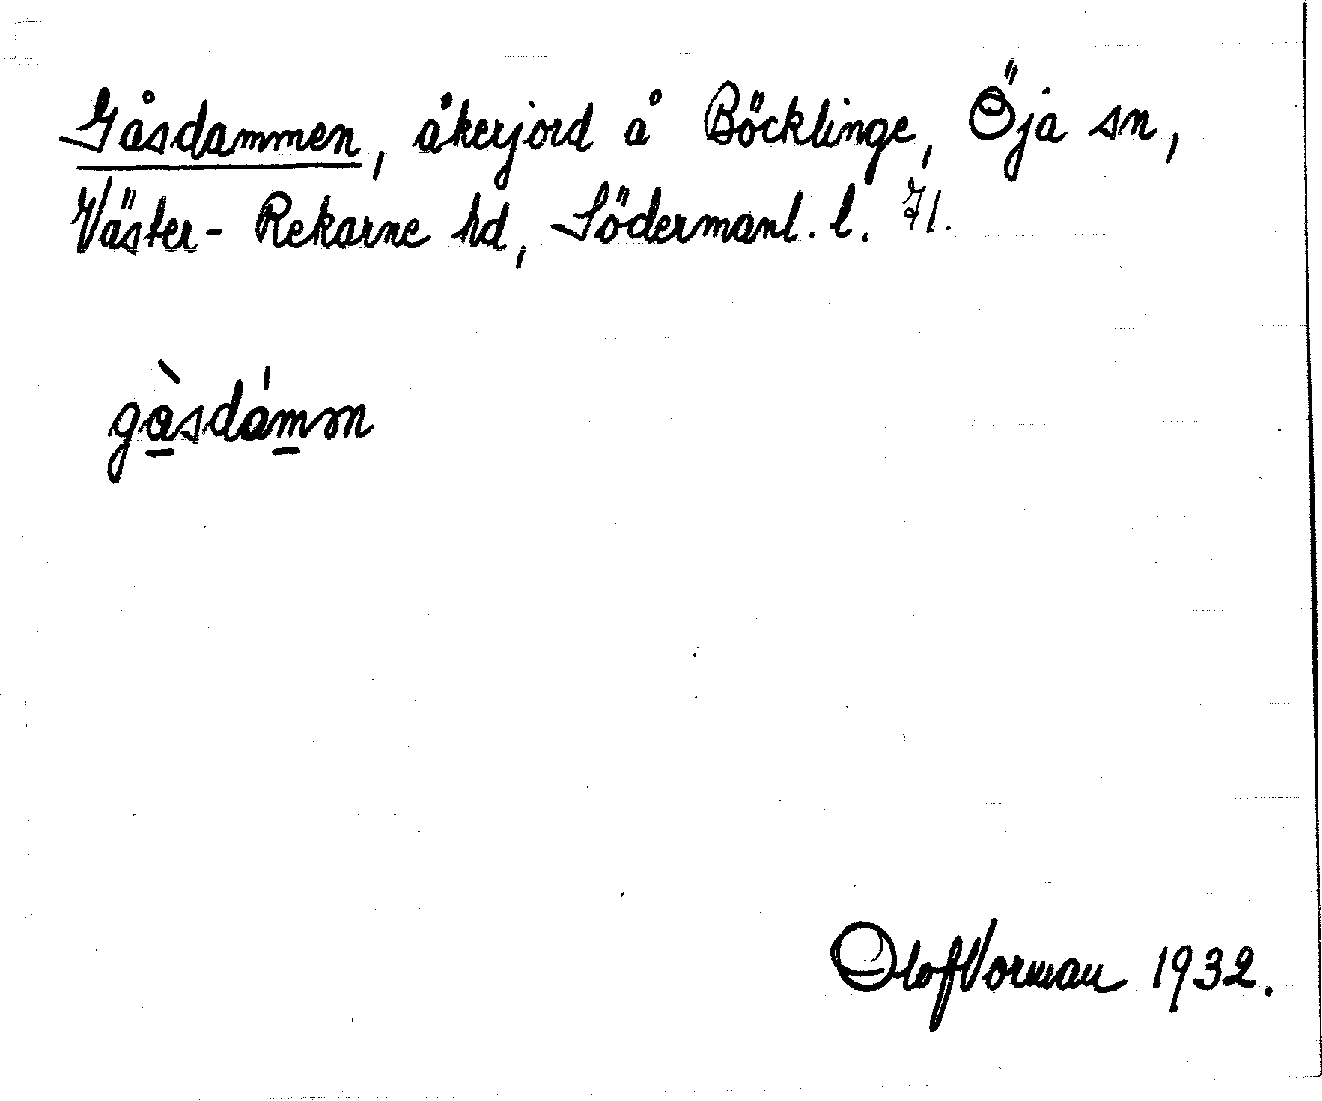 Gåsdammen, åkerjord å Böcklinge, Öja sn,
Väster-Rekarne hd, Södermanl. l. 71.
gàsdámən
Olof Vorman 1932.